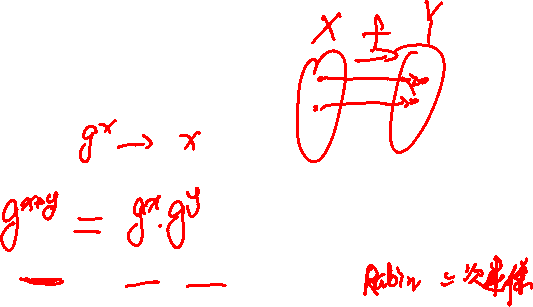 X f Y
g^x → x
g^{x+y} = g^x · g^y
Rabin 二次剩余